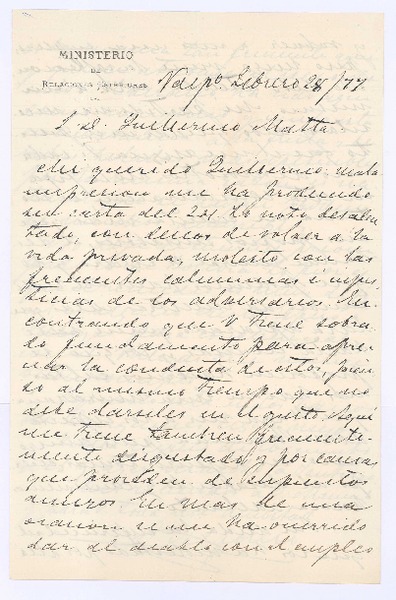 MINISTERIO
DE
RELACIONES EXTERIORES
Valpo. Febrero 28/77
S. D. Guillermo Matta.
Mi querido Guillermo: mala
impresion me ha producido
su carta del 24. Lo noto desalen
tado, con deseos de volver a la
vida privada, molesto con las
frecuentes calumnias é injus
ticias de los adversarios. En
contrando que V tiene sobra
do fundamento para apre
ciar la conducta de estos, pien
so al mismo tiempo que no
debe darseles en el gusto. Aqui
me tiene tambien frecuente
mente disgustado y por causas
que proceden de supuestos
amigos. En mas de una
ocasion se me ha ocurrido
dar al diablo con el empleo